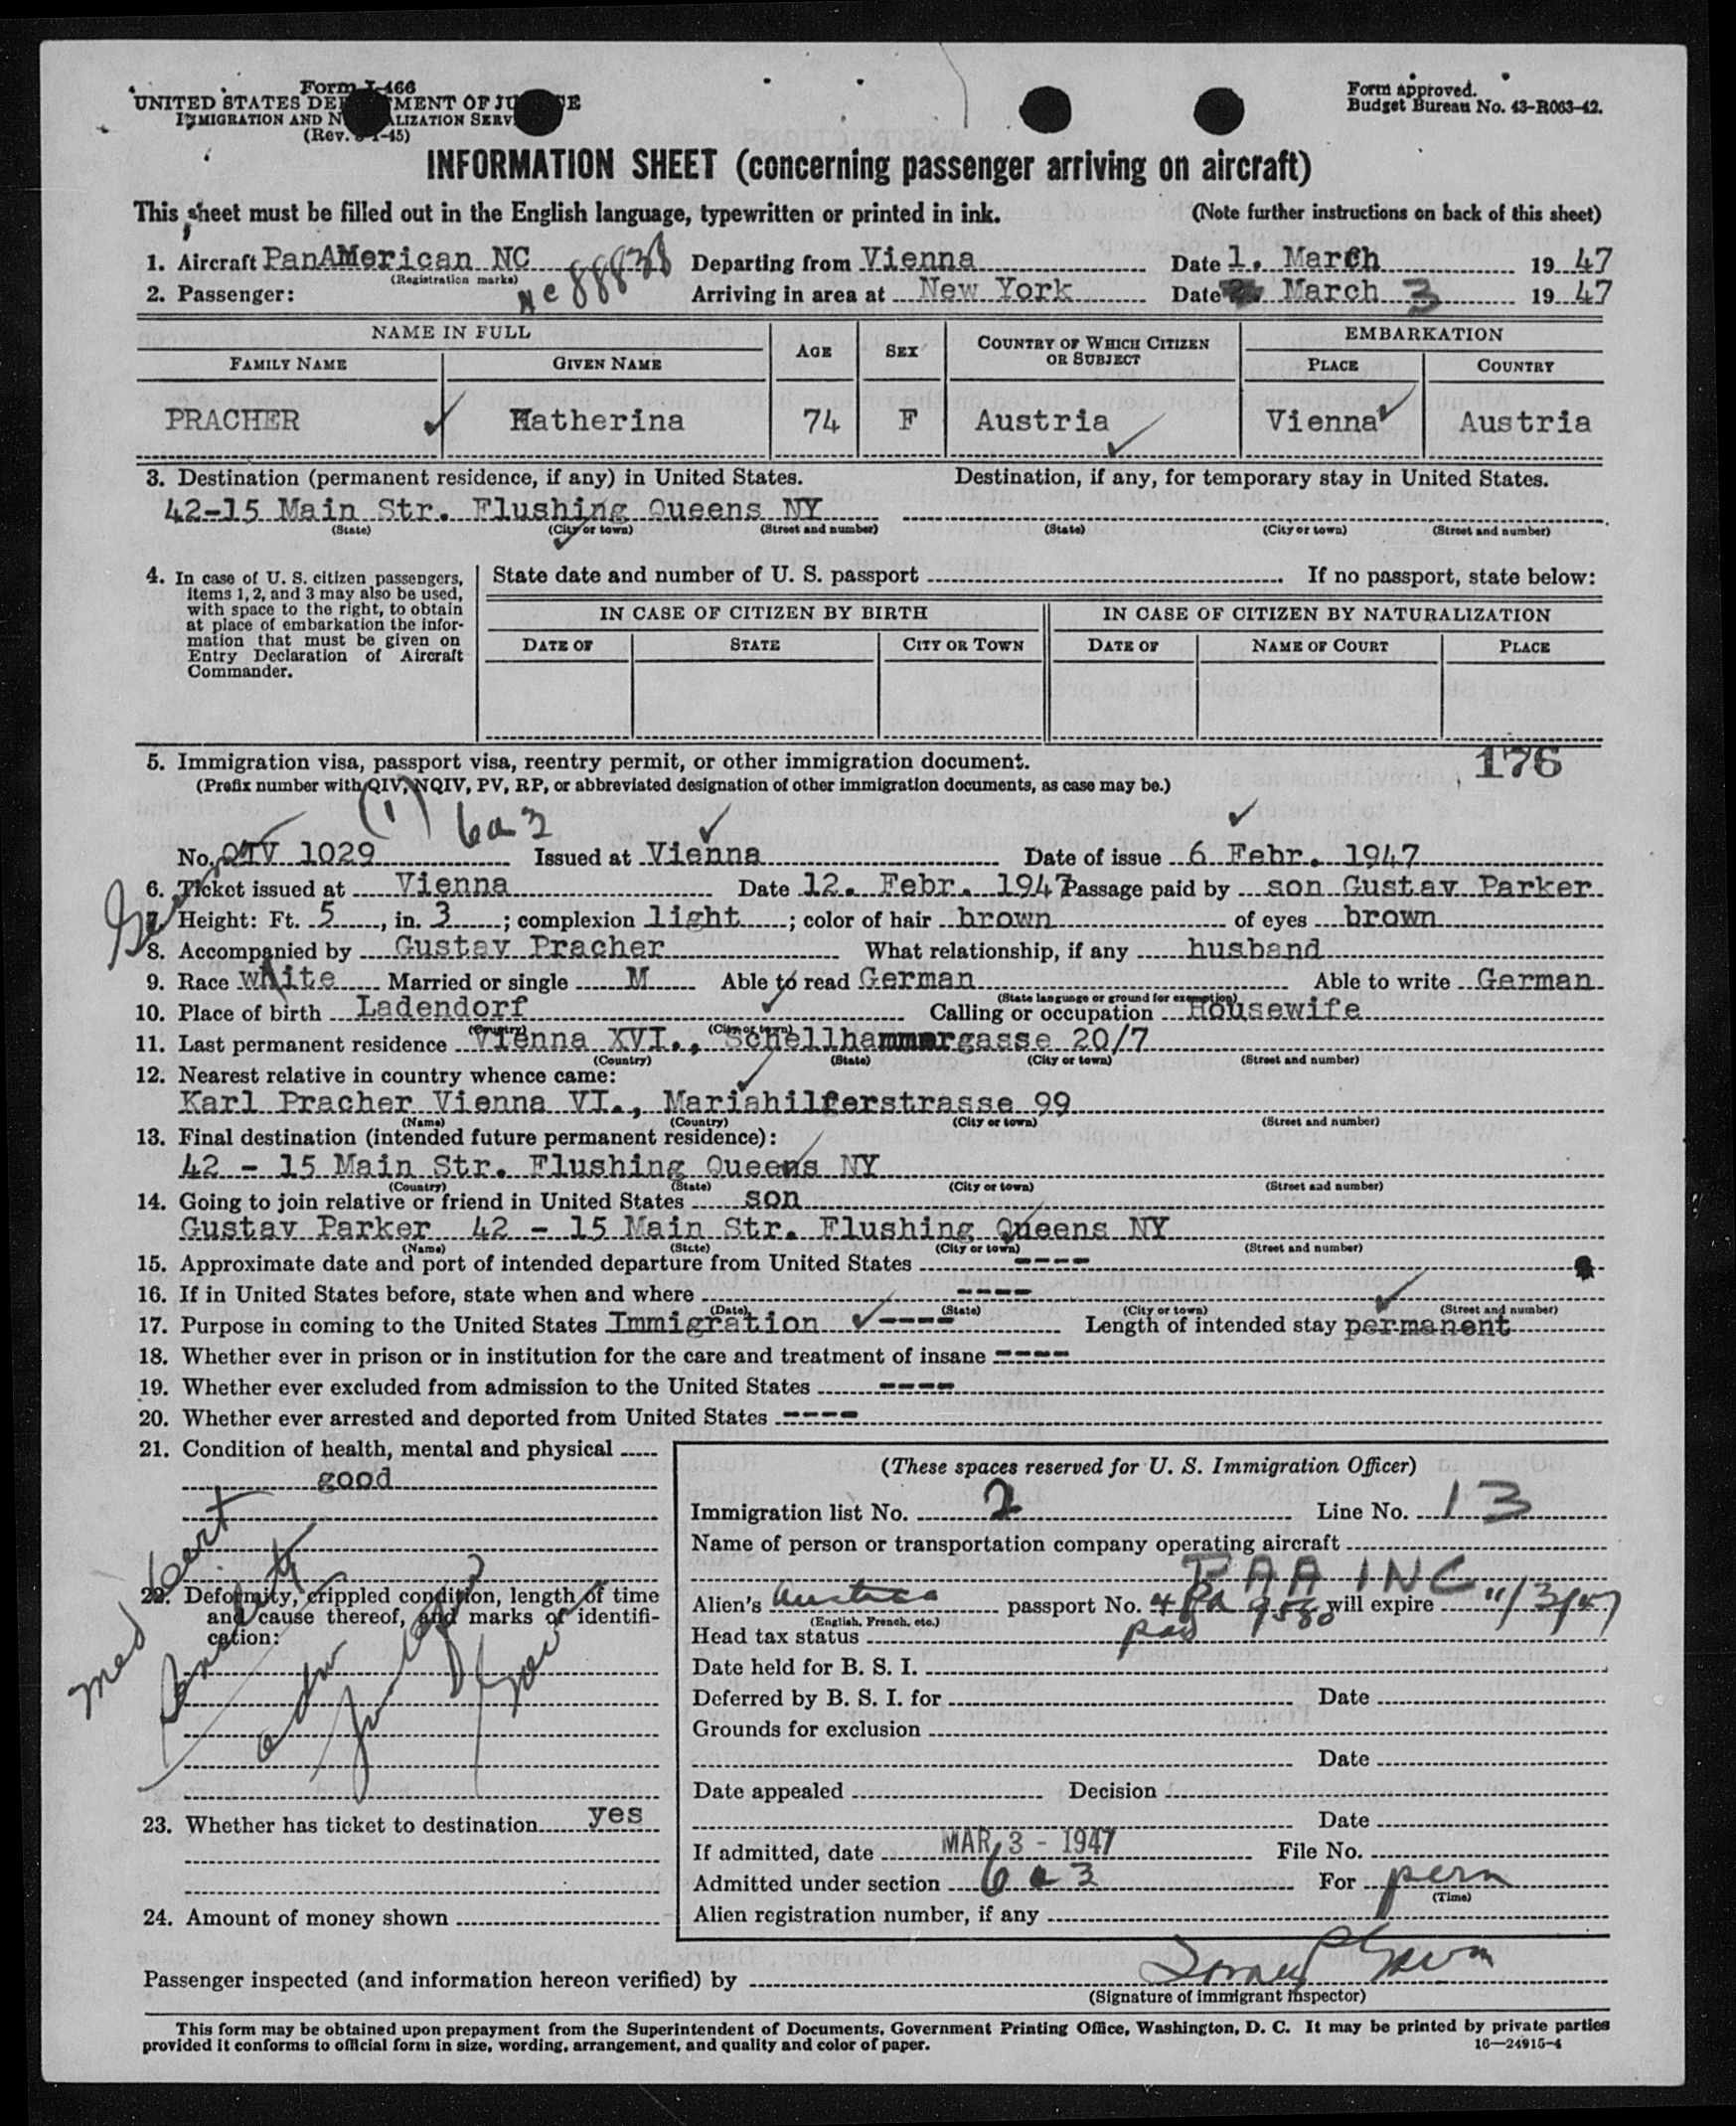 Form I-466
UNITED STATES DEPARTMENT OF JUSTICE
IMMIGRATION AND NATURALIZATION SERVICE
(Rev. -45)
Form approved.
Budget Bureau No. 43-R063-42.
INFORMATION SHEET (concerning passenger arriving on aircraft)
This sheet must be filled out in the English language, typewritten or printed in ink. (Note further instructions on back of this sheet)
1. Aircraft PanAMerican NC Departing from Vienna Date 1. March 19 47
(Registration marks)
2. Passenger: Arriving in area at New York Date March 3 19 47
NAME IN FULL AGE SEX COUNTRY OF WHICH CITIZEN OR SUBJECT EMBARKATION
FAMILY NAME GIVEN NAME PLACE COUNTRY
PRACHER Katherina 74 F Austria Vienna Austria
3. Destination (permanent residence, if any) in United States. Destination, if any, for temporary stay in United States.
42-15 Main Str. Flushing Queens NY
(State) (City or town) (Street and number) (State) (City or town) (Street and number)
4. In case of U. S. citizen passengers, items 1, 2, and 3 may also be used, with space to the right, to obtain at place of embarkation the information that must be given on Entry Declaration of Aircraft Commander.
State date and number of U. S. passport If no passport, state below:
IN CASE OF CITIZEN BY BIRTH IN CASE OF CITIZEN BY NATURALIZATION
DATE OF STATE CITY OR TOWN DATE OF NAME OF COURT PLACE
5. Immigration visa, passport visa, reentry permit, or other immigration document. 176
(Prefix number with QIV, NQIV, PV, RP, or abbreviated designation of other immigration documents, as case may be.)
(1) 6a3
No. QIV 1029 Issued at Vienna Date of issue 6 Febr. 1947
6. Ticket issued at Vienna Date 12. Febr. 1947 Passage paid by son Gustav Parker
7. Height: Ft. 5, in. 3; complexion light; color of hair brown of eyes brown
8. Accompanied by Gustav Pracher What relationship, if any husband
9. Race white Married or single M Able to read German Able to write German
(State language or ground for exemption)
10. Place of birth Ladendorf Calling or occupation Housewife
(Country) (City or town)
11. Last permanent residence Vienna XVI., Schellhammergasse 20/7
(Country) (State) (City or town) (Street and number)
12. Nearest relative in country whence came:
Karl Pracher Vienna VI., Mariahilferstrasse 99
(Name) (Country) (City or town) (Street and number)
13. Final destination (intended future permanent residence):
42 - 15 Main Str. Flushing Queens NY
(Country) (State) (City or town) (Street and number)
14. Going to join relative or friend in United States son
Gustav Parker 42 - 15 Main Str. Flushing Queens NY
(Name) (State) (City or town) (Street and number)
15. Approximate date and port of intended departure from United States ----
16. If in United States before, state when and where ----
(Date) (State) (City or town) (Street and number)
17. Purpose in coming to the United States Immigration ---- Length of intended stay permanent
18. Whether ever in prison or in institution for the care and treatment of insane ----
19. Whether ever excluded from admission to the United States ----
20. Whether ever arrested and deported from United States ----
21. Condition of health, mental and physical
good
med cert
22. Deformity, crippled condition, length of time and cause thereof, and marks of identification:
23. Whether has ticket to destination yes
24. Amount of money shown
(These spaces reserved for U. S. Immigration Officer)
Immigration list No. 2 Line No. 13
Name of person or transportation company operating aircraft
PAA INC
Alien's Austria passport No. will expire
(English, French, etc.)
Head tax status
Date held for B. S. I.
Deferred by B. S. I. for Date
Grounds for exclusion
Date
Date appealed Decision
Date
If admitted, date MAR 3 - 1947 File No.
Admitted under section 6a3 For perm
(Time)
Alien registration number, if any
Passenger inspected (and information hereon verified) by
(Signature of immigrant inspector)
This form may be obtained upon prepayment from the Superintendent of Documents, Government Printing Office, Washington, D. C. It may be printed by private parties
provided it conforms to official form in size, wording, arrangement, and quality and color of paper. 16—24915-4